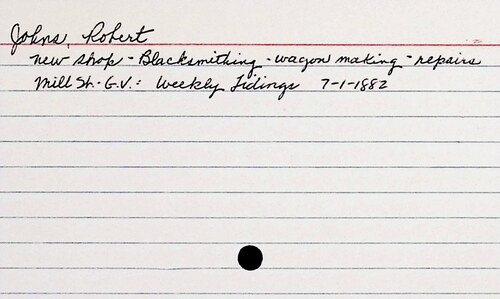 Johns, Robert
new shop - Blacksmithing - wagon making - repairs
Mill St. G.V.: Weekly Tidings 7-1-1882